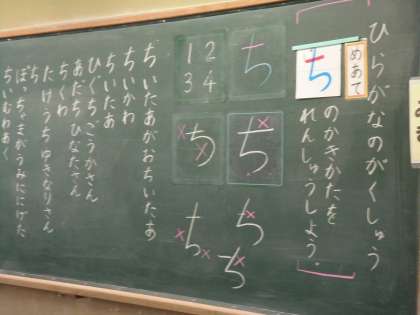 ひらがなのがくしゅう
めあて
ち
のかきかたを
れんしゅうしよう。
ち
12
34
ち
ち
ち
ち
ち
ぢいたあがおちいたあ
ちいかわ
ちいたあ
ひぐちごうかさん
あだちひなたさん
ちくわ
たけうちゆきなりさん
ち
ぼっちゃまがうみににげた
ちいむわあく